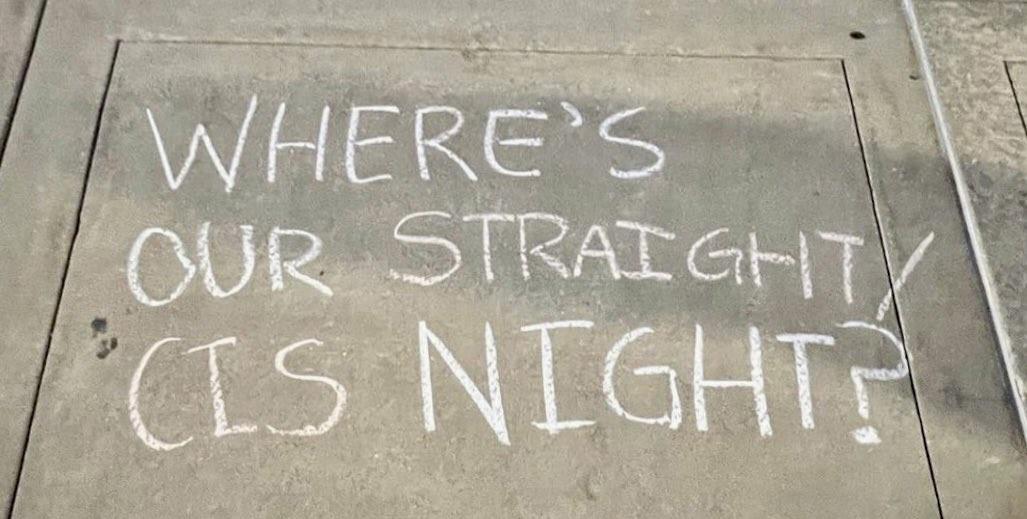 WHERE'S
OUR STRAIGHT/
CIS NIGHT?